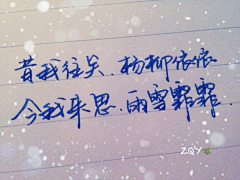 昔我往矣、杨柳依依
今我来思.雨雪霏霏.
ZQY